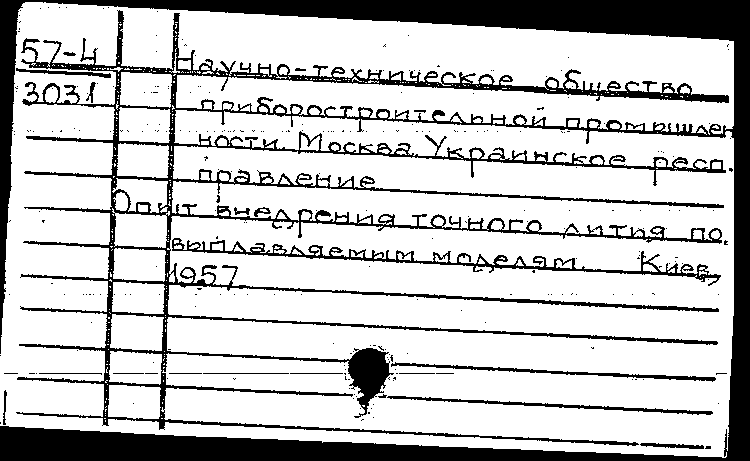 57-4
3031
Научно-техническое общество
приборостроительной промышлен
ности. Москва. Украинское респ.
правление
Опыт внедрения точного литья по
выплавляемым моделям. Киев,
1957.